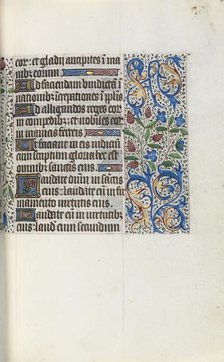 eor: et gladij ancipites i ma
nibz eorum
Ad faciendam vindictā i
nationibz: increpationes i pplīs.
Ad alligandos reges eor
in compedibz: et nobiles eor
in manicis ferreis
Ut faciant in eis iudiciū
conscriptum: gloria hec est
omnibz sanctis eius
Laudate dnm in sāctis
eius: laudate eū in fir
mamento virtutis eius.
Laudate eū in virtutibz
eius: laud eum secundum